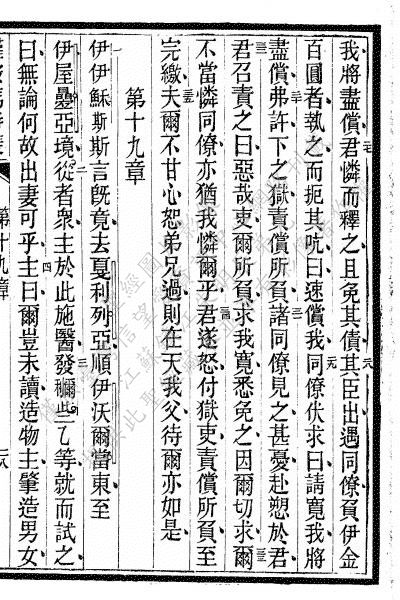 我將盡償君憐而釋之且免其債其臣出遇同僚負伊金
百圓者執之而扼其吭曰速償我同僚伏求曰請寬我將
盡償弗許下之獄責償所負諸同僚見之甚憂赴愬於君
君召責之曰惡哉吏爾所負求我寬悉免之因爾切求爾
不當憐同僚亦猶我憐爾乎君遂怒付獄吏責償所負至
完繳夫爾不甘心恕弟兄過則在天我父待爾亦如是
第十九章
伊伊穌斯斯言旣竟去戛利列亞順伊沃爾當東至
伊屋疊亞境從者衆主於此施醫發些乙等就而試之
曰無論何故出妻可乎主曰爾豈未讀造物主肇造男女
第十九章